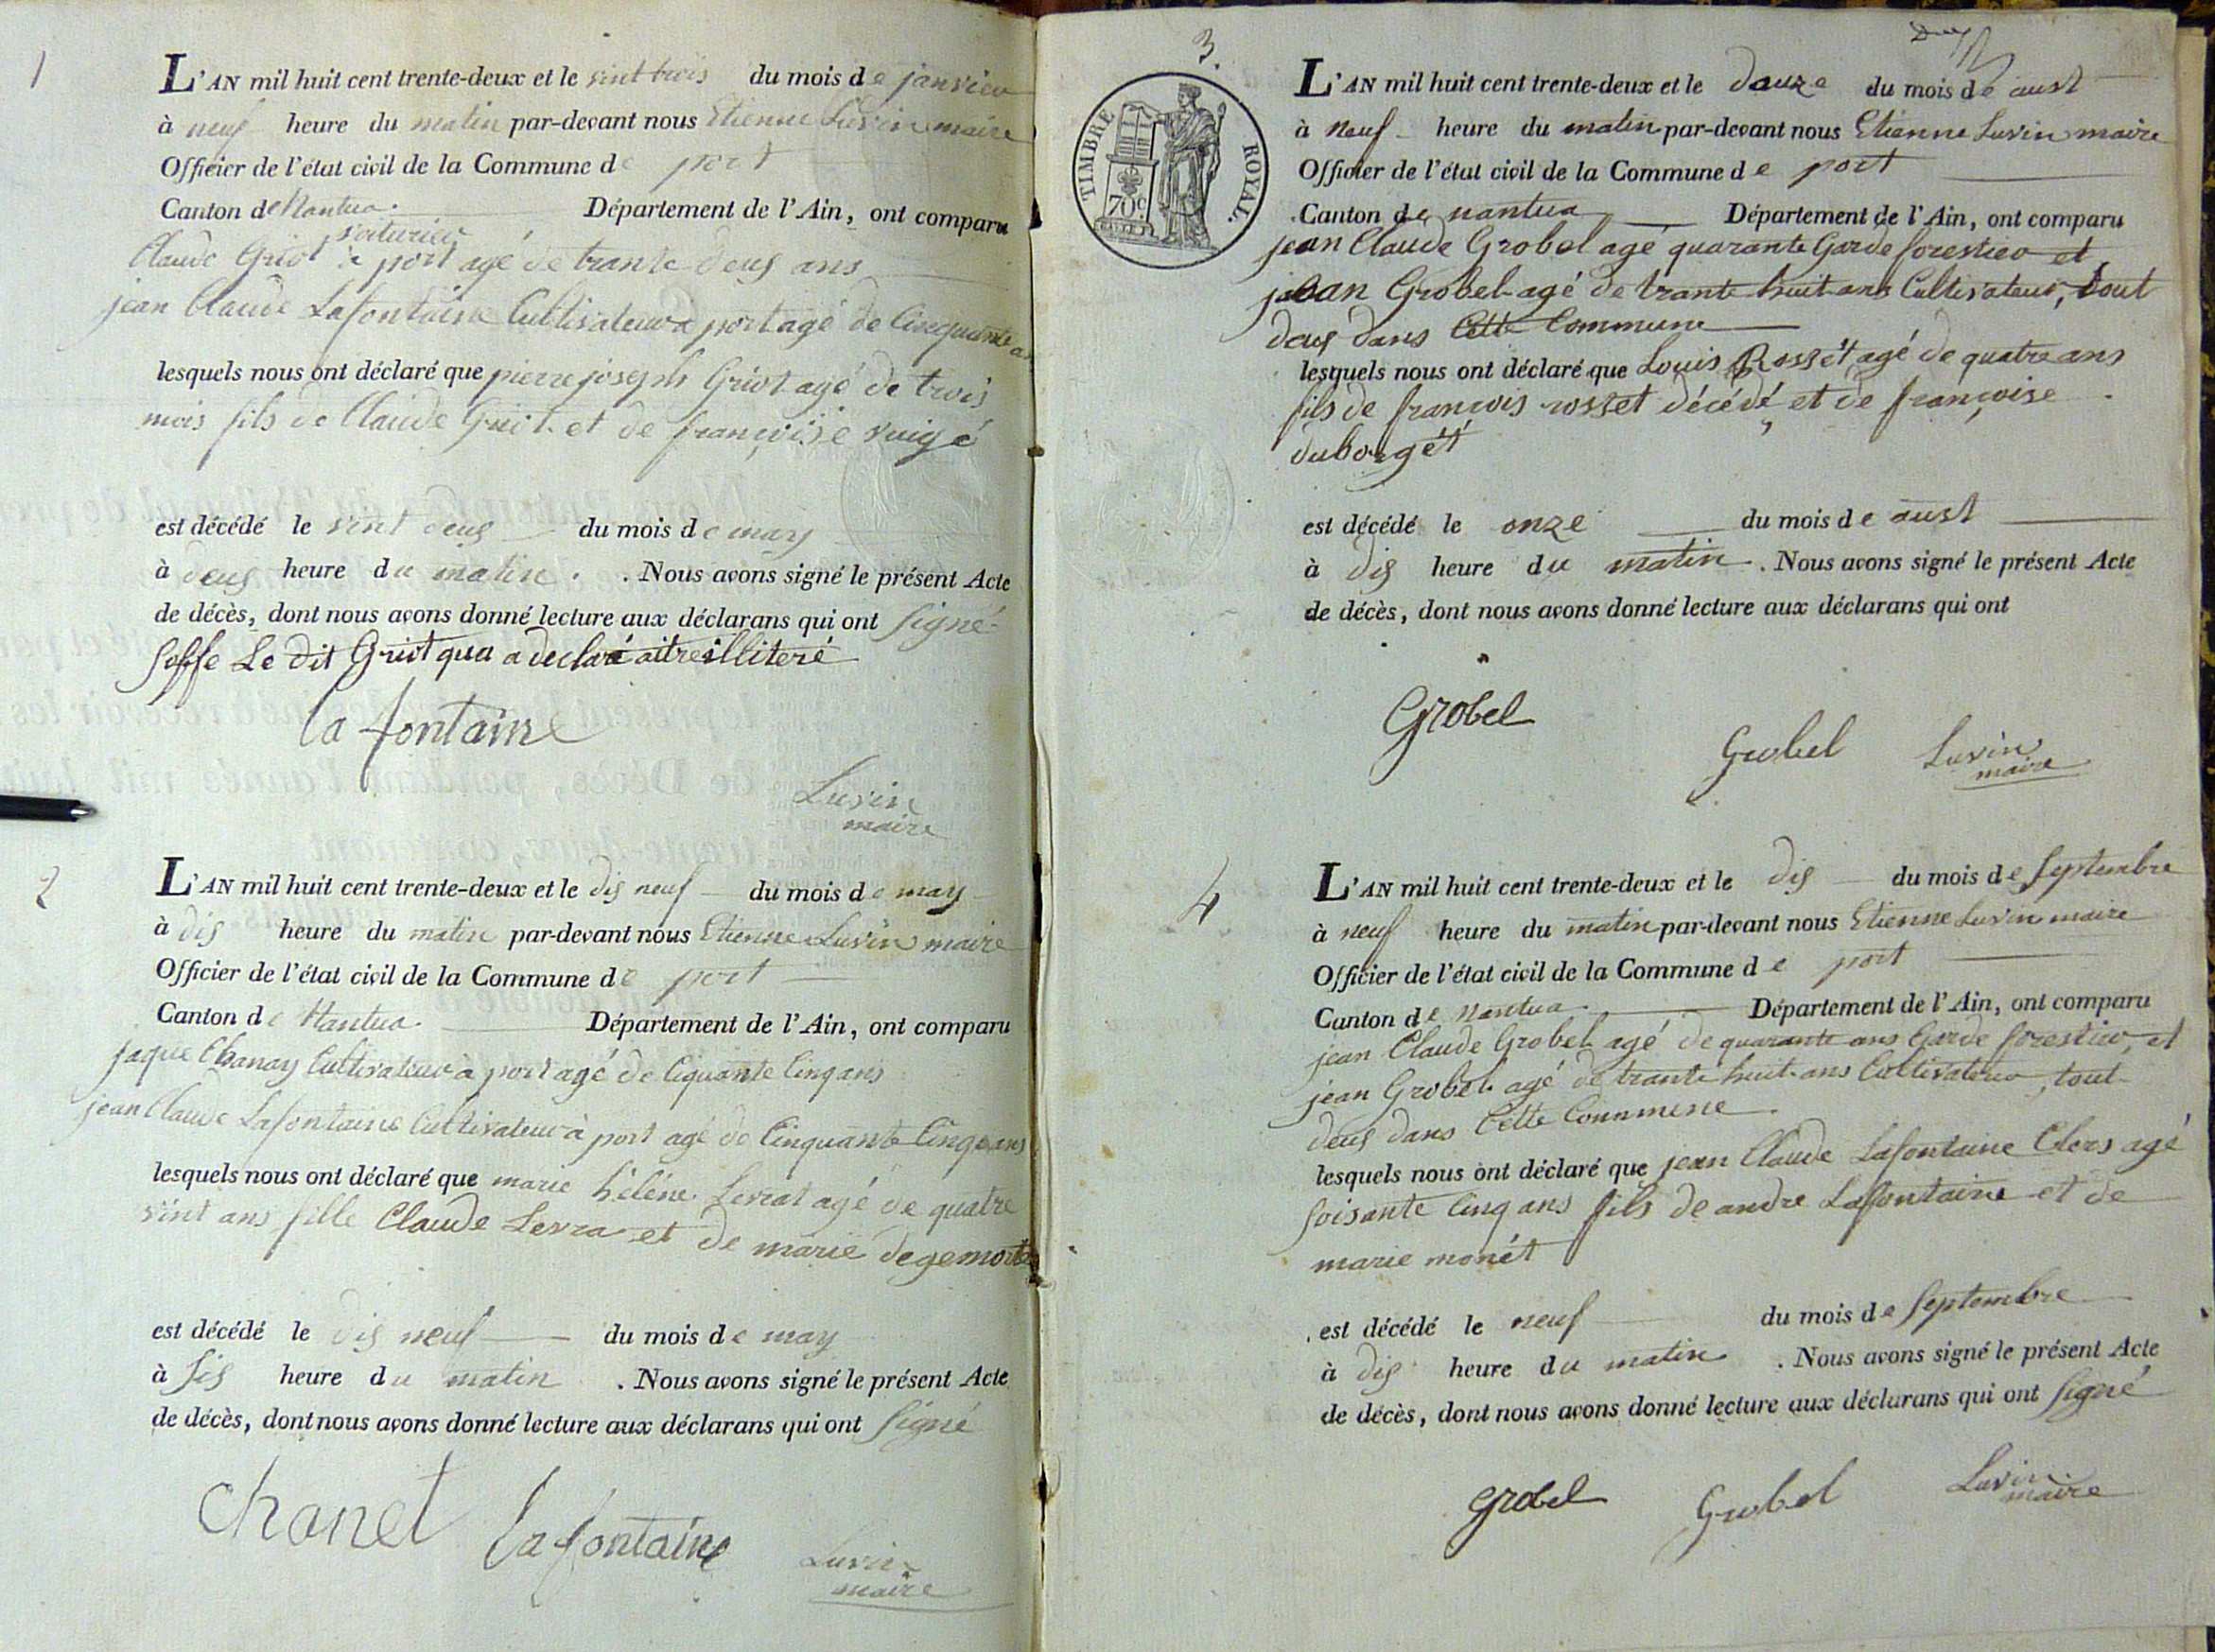 1
L'AN mil huit cent trente-deux et le vint trois du mois de janvier
à neuf heure du matin par-devant nous Etienne Luvin maire
Officier de l'état civil de la Commune de port
Canton de Nantua. Département de l'Ain, ont comparu
voiturier
Claude Griot à port agé de trante deus ans
jean Claude Lafontaine Cultivateur à port agé de Cinquante
lesquels nous ont déclaré que pierre joseph Griot agé de trois
mois fils de Claude Griot et de françoise
est décédé le vint deus du mois de may
à deus heure du matin. . Nous avons signé le présent Acte
de décès, dont nous avons donné lecture aux déclarans qui ont signé
soffe Le dit Griot qua a declaré aitre illiteré
la fontaine
Luvin
maire
2
L'AN mil huit cent trente-deux et le dis neuf du mois de may
à dis heure du matin par-devant nous Etienne Luvin maire
Officier de l'état civil de la Commune de port
Canton de Nantua. Département de l'Ain, ont comparu
jaque Chanay Cultivateur à port agé de Ciquante Cinq ans
jean Claude Lafontaine Cultivateur à port agé de Cinquante Cinq ans
lesquels nous ont déclaré que marie héléne Levrat agé de quatre
vint ans fille Claude Levra et de marie degemonte
est décédé le dis neuf du mois de may
à sis heure du matin . Nous avons signé le présent Acte
de décès, dont nous avons donné lecture aux déclarans qui ont signé
Chanel la fontaine Luvin
maire
3.
TIMBRE ROYAL.
70c
L'AN mil huit cent trente-deux et le douze du mois de aust
à neuf heure du matin par-devant nous Etienne Luvin maire
Officier de l'état civil de la Commune de port
Canton de nantua Département de l'Ain, ont comparu
jean Claude Grobel agé quarante Garde forestier et
jean Grobel agé de trante huit ans Cultivateur, tout
deus dans Cette Commune
lesquels nous ont déclaré que Louis Rossét agé de quatre ans
fils de françois rosset décédé, et de françoise
duborgét
est décédé le onze du mois de aust
à dis heure du matin . Nous avons signé le présent Acte
de décès, dont nous avons donné lecture aux déclarans qui ont
Grobel Grobel Luvin
maire
4
L'AN mil huit cent trente-deux et le dis du mois de septembre
à neuf heure du matin par-devant nous Etienne Luvin maire
Officier de l'état civil de la Commune de port
Canton de Nantua. Département de l'Ain, ont comparu
jean Claude Grobel agé de quarante ans Garde forestier, et
jean Grobel agé de trante huit ans Cultivateur, tout
deus dans Cette Commune.
lesquels nous ont déclaré que jean Claude Lafontaine Clers agé
soisante Cinq ans fils de andre Lafontaine et de
marie monét
est décédé le neuf du mois de septembre
à dis heure du matin . Nous avons signé le présent Acte
de décès, dont nous avons donné lecture aux déclarans qui ont signé
Grobel Grobel Luvin
maire